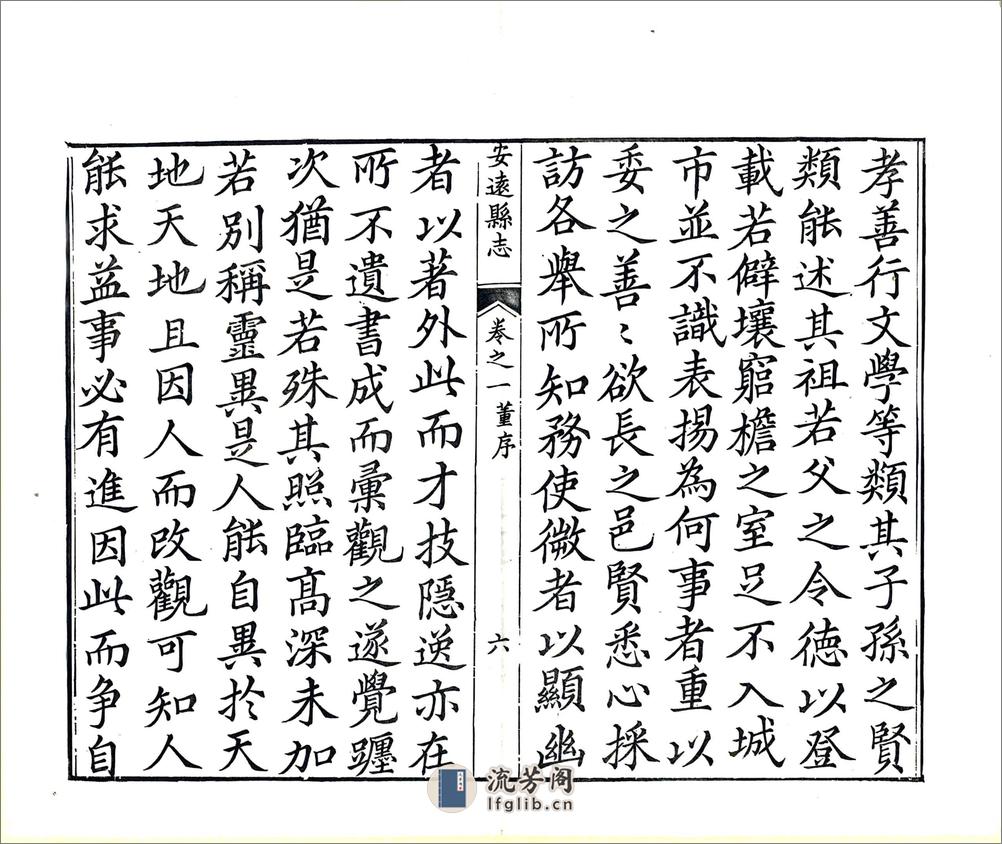 孝善行文學等類其子孫之賢
類能述其祖若父之令德以登
載若僻壤窮檐之室足不入城
市並不識表揚為何事者重以
委之善〻欲長之邑賢悉心採
訪各舉所知務使微者以顯幽
安遠縣志
卷之一 董序
六
者以著外此而才技隱逸亦在
所不遺書成而彙觀之遂覺躔
次猶是若殊其照臨高深未加
若別稱靈異是人能自異於天
地天地且因人而改觀可知人
能求益事必有進因此而争自
流芳阁
lfglib.cn